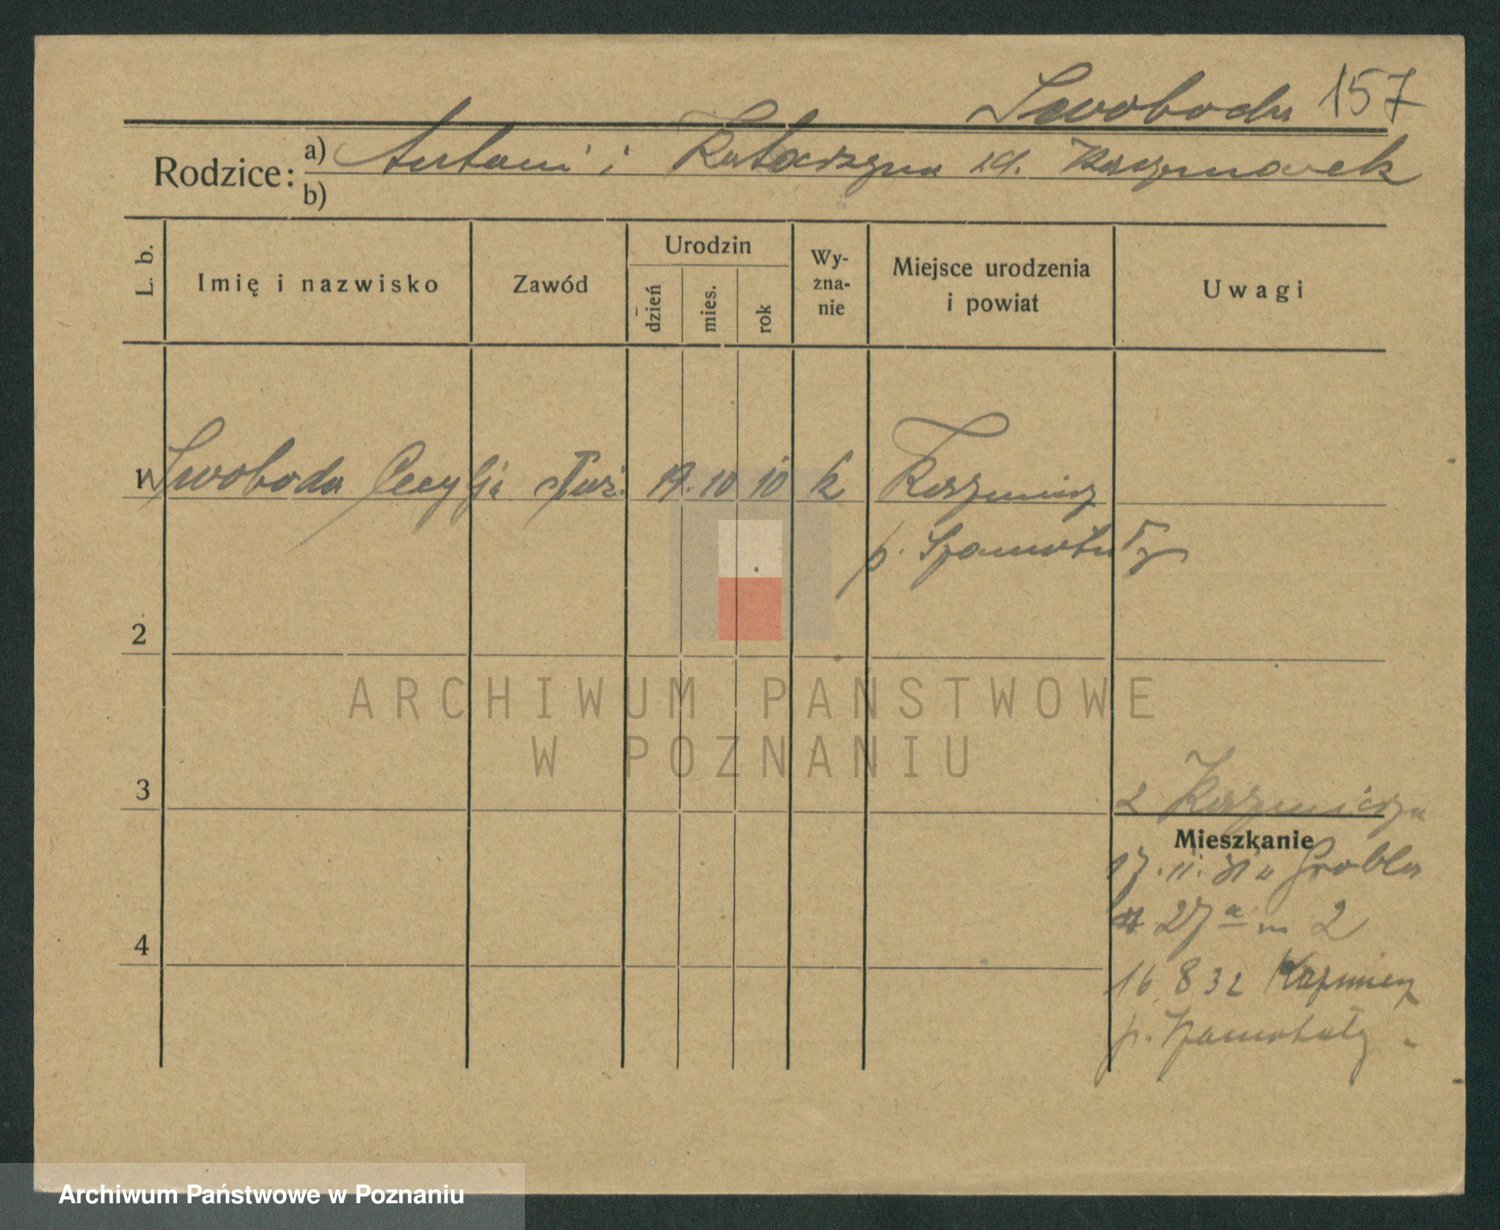 Swoboda 157
Rodzice: a) Antoni i Katarzyna zd. Kaczmarek
b)
L. b.
Imię i nazwisko
Zawód
Urodzin
dzień
mies.
rok
Wy-
zna-
nie
Miejsce urodzenia
i powiat
Uwagi
1 Swoboda Cecylja służ. 19. 10 10 k Kazmierz
p. Szamotuły
2
3
4
z Kazmierza
Mieszkanie
17. 11. 31 Grobla
27 a m 2
16. 8 32 Kazmierz
p. Szamotuły
ARCHIWUM PAŃSTWOWE
W POZNANIU
Archiwum Państwowe w Poznaniu